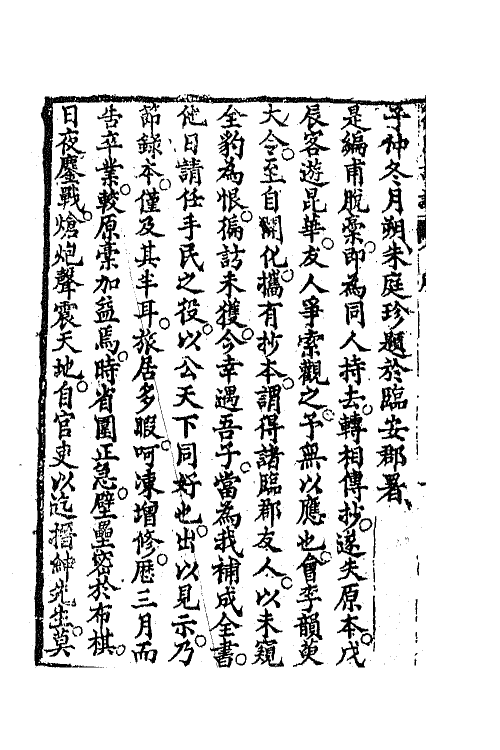 子仲冬月朔朱庭珍題於臨安郡署
是編甫脫稾即為同人持去轉相傳抄遂失原本戊
辰客遊昆華友人爭索觀之予無以應也會李韻萸
大令至自開化攜有抄本謂得諸臨郡友人以未窺
全豹為恨徧訪未獲今幸遇吾子當為我補成全書
他日請任手民之役以公天下同好也出以見示乃
節錄本僅及其半耳旅居多暇呵凍增修歴三月而
告卒業較原稾加益焉時省圍正急壁壘密於布棋
日夜鏖戰熗炮聲震天地自官吏以迄搢紳先生莫